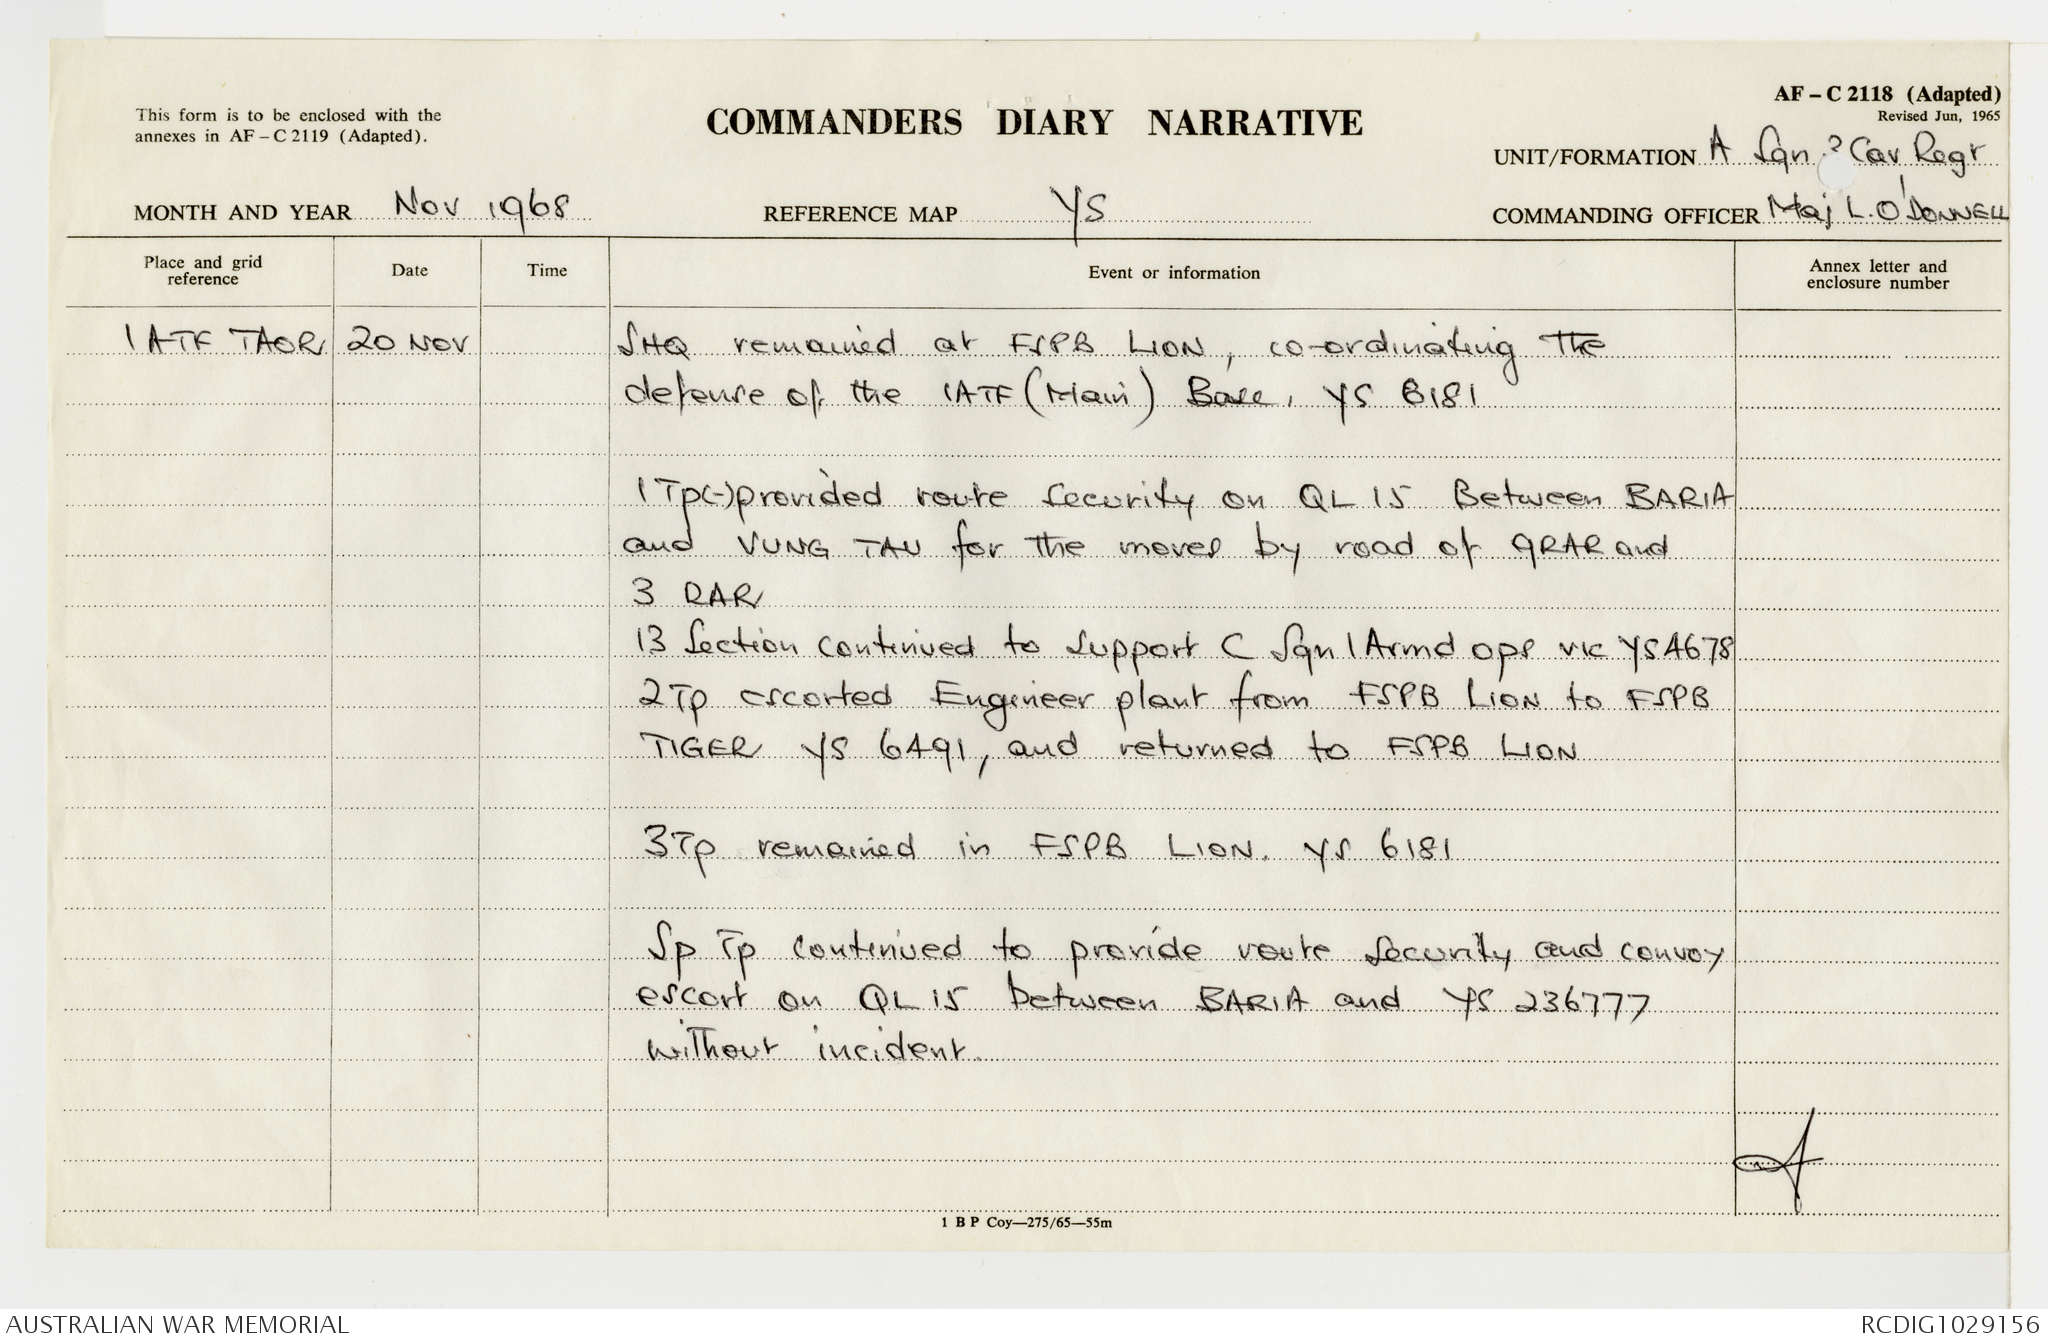 This form is to be enclosed with the
annexes in AF – C 2119 (Adapted).
COMMANDERS DIARY NARRATIVE
AF – C 2118 (Adapted)
Revised Jun, 1965
UNIT/FORMATION A Sqn 3 Cav Regt
MONTH AND YEAR Nov 1968
REFERENCE MAP YS
COMMANDING OFFICER Maj L. O'DONNELL
Place and grid
reference
Date
Time
Event or information
Annex letter and
enclosure number
1 ATF TAOR 20 NOV SHQ remained at FSPB LION, co-ordinating the
defense of the 1ATF (Main) Base, YS 6181
1 Tp(-) provided route security on QL 15 Between BARIA
and VUNG TAU for the moves by road of 9RAR and
3 RAR
13 Section continued to support C Sqn 1 Armd ops vic YS4678
2Tp escorted Engineer plant from FSPB LION to FSPB
TIGER YS 6491, and returned to FSPB LION
3Tp remained in FSPB LION. YS 6181
Sp Tp continued to provide route security and convoy
escort on QL 15 between BARIA and YS 236777
without incident.
1 B P Coy—275/65—55m
AUSTRALIAN WAR MEMORIAL
RCDIG1029156